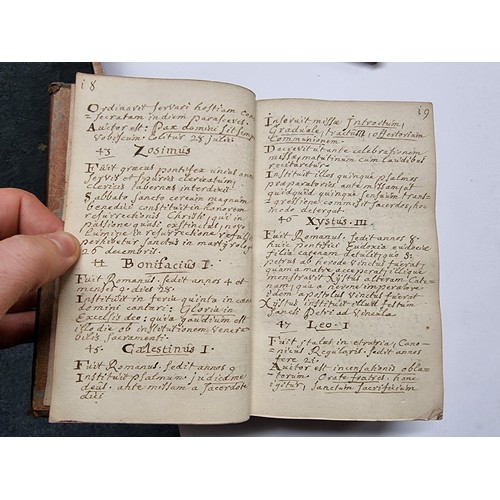 18
Ordinavit servari hostiam con=
=secratam in diem parasceves.
Auctor est: Pax domini sit semp
vobiscum. colitur 28 Julii
43 Zosimus
Fuit græcus pontifex
servit et figuris clericatum,
clericis tabernas interdixit
Sabbato sancto cereum magnum
benedici constituit in honorem
resurrectionis Christi, qui in
passione quasi extinctus, novo
lumine in resurrectione refulsit
perhibetur sanctus in martyrolog
26 decembris.
44 Bonifacius I.
Fuit Romanus, sedit annos 4 et
menses 9. diet 28.
Instituit in feria quinta in cæna
domini cantari: Gloria in
Excelsis deo: quia gaudium est
illo die ob institutionem venera=
bilis sacramenti.
45. Cælestinus I.
Fuit Romanus. sedit annos 9
Instituit psalmum judica me
deus. ante missam a sacerdote
dici
19
Inseruit missæ Introitum,
Graduale, tractum, offertorium
Communionem.
Decrevit ut ante celebrationem
missæ, matutinum cum laudibus
recitaretur
Instituit illos quinque psalmos
præparatorios ante missam, ut
quidquid quinque sensuum trans=
=gressione commisit sacerdos, hoc
modo detergat.
46 Xystus. III.
Fuit Romanus. sedit annos 8.
huic pontifici Eudoxia eudociæ
filia catenam detulit, quo S:
petrus ab herode vinctus fuerat,
quam a matre acceperat, illique
monstravit Xystus alteram Cate=
nam, qua a nerone imperatore
idem apostolus vinctus fuerat
Xystus instituit festum
Sancti Petri ad vincula.
47 Leo. I
Fuit Cano=
=nicus Regularis. sedit annos
fere 21.
Auctor est incensationis obla=
=torum. Orate fratres. hanc
igitur, sanctum sacrificium